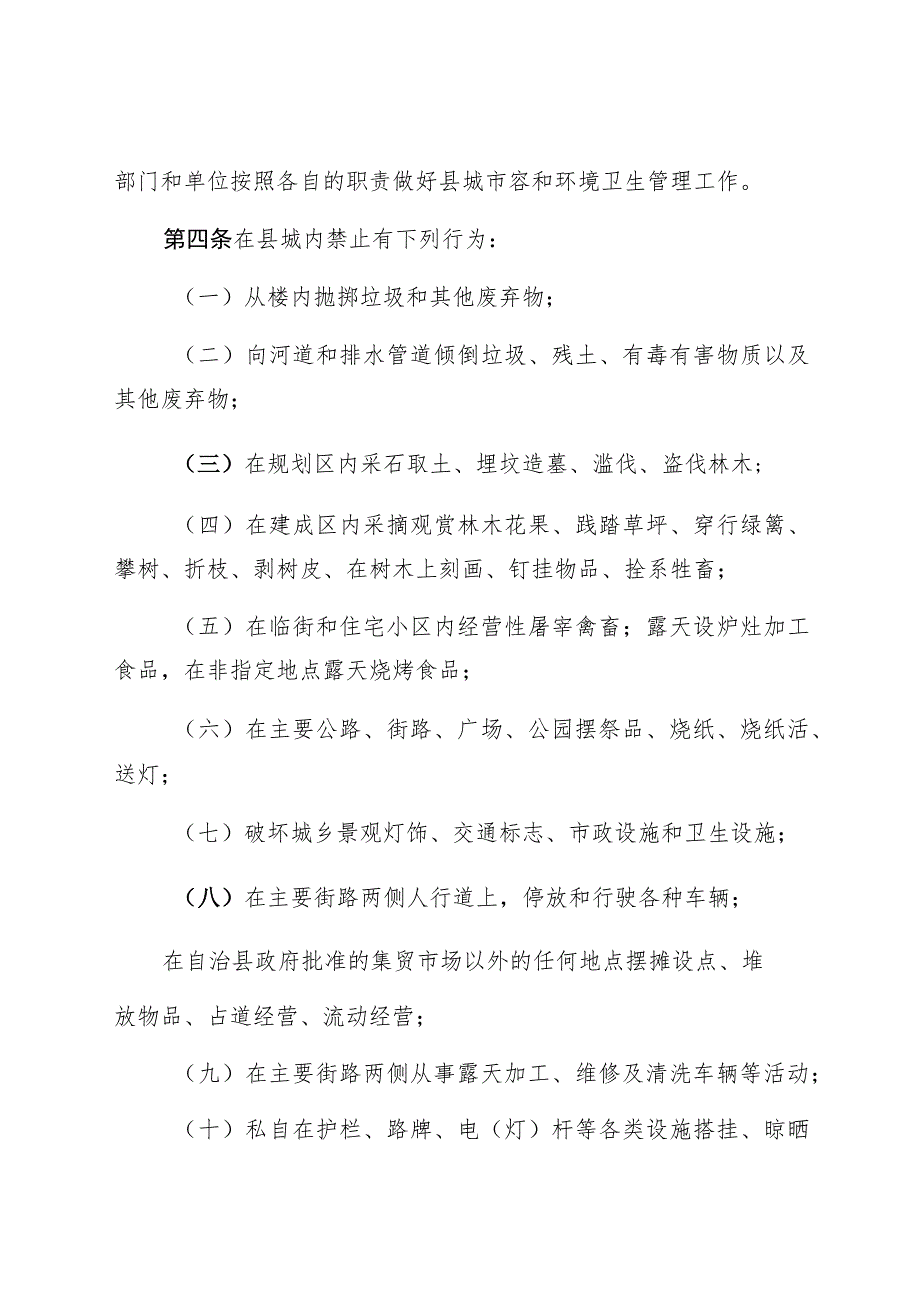 部门和单位按照各自的职责做好县城市容和环境卫生管理工作。
第四条在县城内禁止有下列行为：
（一）从楼内抛掷垃圾和其他废弃物；
（二）向河道和排水管道倾倒垃圾、残土、有毒有害物质以及
其他废弃物；
（三）在规划区内采石取土、埋坟造墓、滥伐、盗伐林木；
（四）在建成区内采摘观赏林木花果、践踏草坪、穿行绿篱、
攀树、折枝、剥树皮、在树木上刻画、钉挂物品、拴系牲畜；
（五）在临街和住宅小区内经营性屠宰禽畜；露天设炉灶加工
食品，在非指定地点露天烧烤食品；
（六）在主要公路、街路、广场、公园摆祭品、烧纸、烧纸活、
送灯；
（七）破坏城乡景观灯饰、交通标志、市政设施和卫生设施；
（八）在主要街路两侧人行道上，停放和行驶各种车辆；
在自治县政府批准的集贸市场以外的任何地点摆摊设点、堆
放物品、占道经营、流动经营；
（九）在主要街路两侧从事露天加工、维修及清洗车辆等活动；
（十）私自在护栏、路牌、电（灯）杆等各类设施搭挂、晾晒